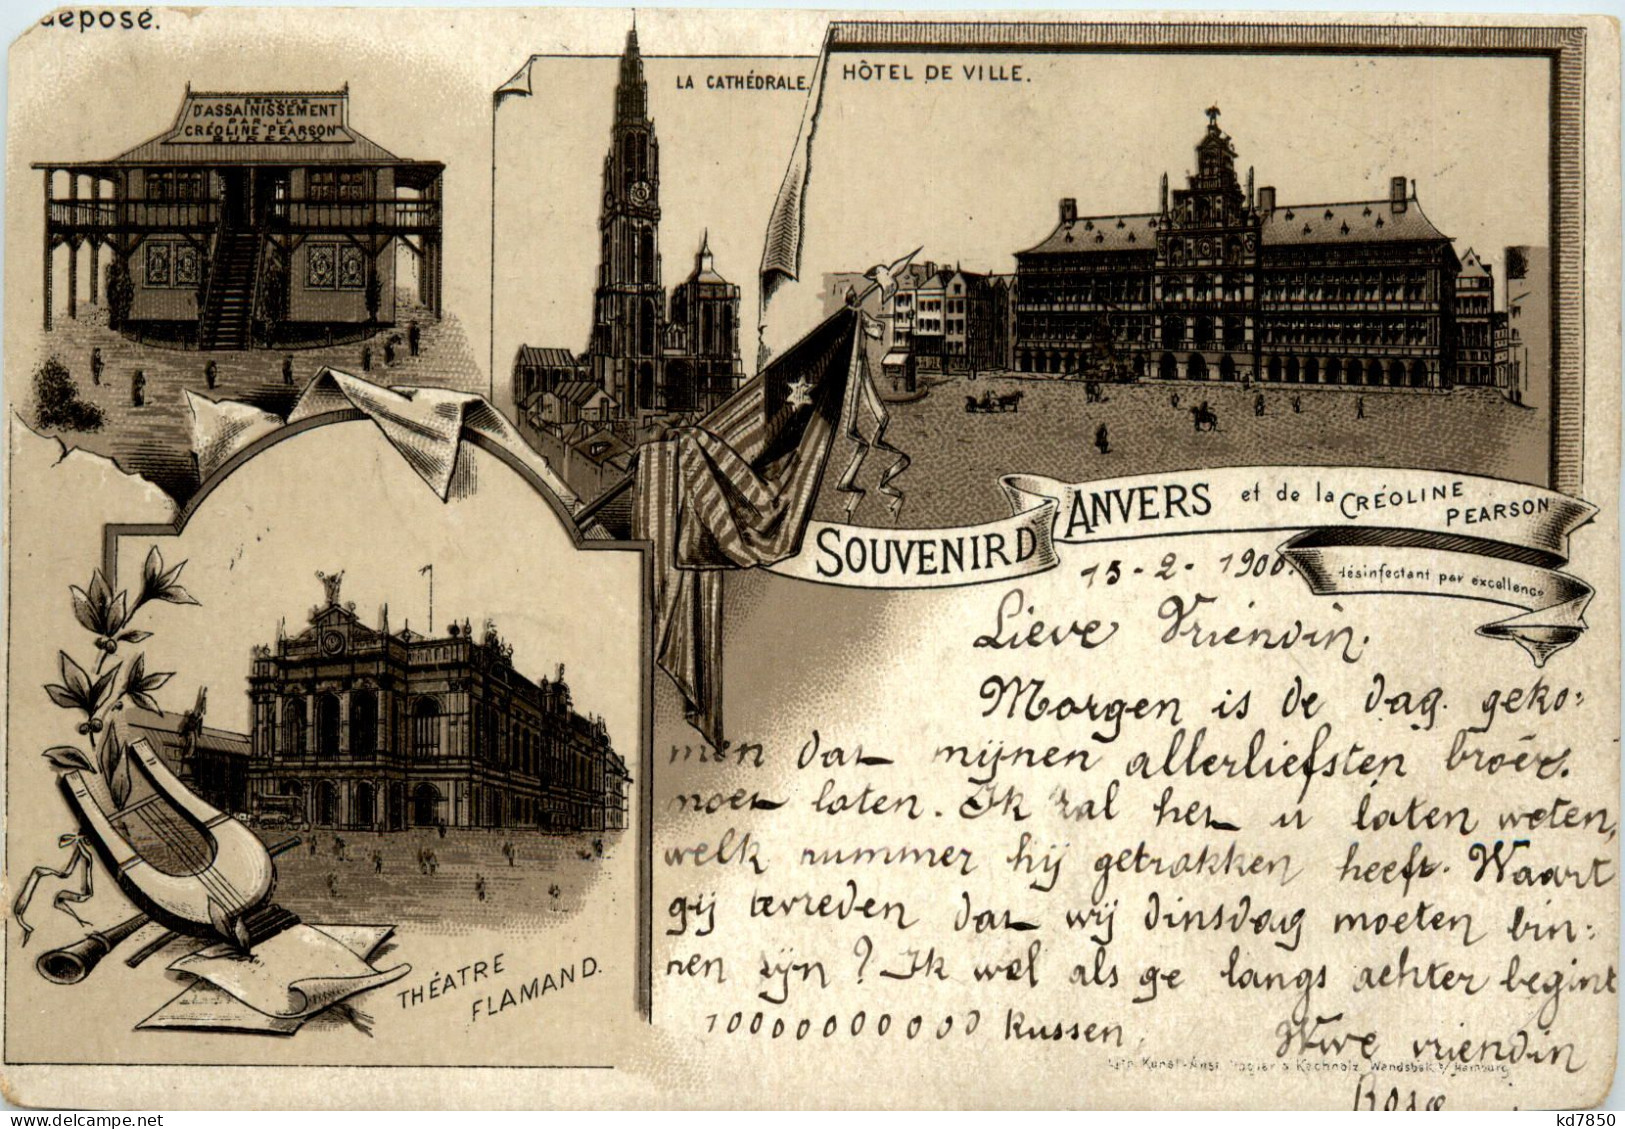 déposé.
SERVICE
D'ASSAINISSEMENT
PAR LA
CRÉOLINE PEARSON
BUREAUX
LA CATHÉDRALE.
HÔTEL DE VILLE.
SOUVENIR D'ANVERS et de la CRÉOLINE
PEARSON
désinfectant par excellence
THÉATRE
FLAMAND.
15-2-1900.
Lieve Vriendin.
Morgen is de dag geko:
men dat mijnen allerliefsten broêr.
moet loten. Ik zal het u laten weten,
welk nummer hij getrokken heeft. Waart
gij tevreden dat wij dinsdag moeten bin:
nen zijn? Ik wel als ge langs achter begint
10000000000 kussen.
Uwe vriendin
Rosa
Lith. Kunst-Anst. & Kochnolz Wandsbek b/Hamburg
kd7850